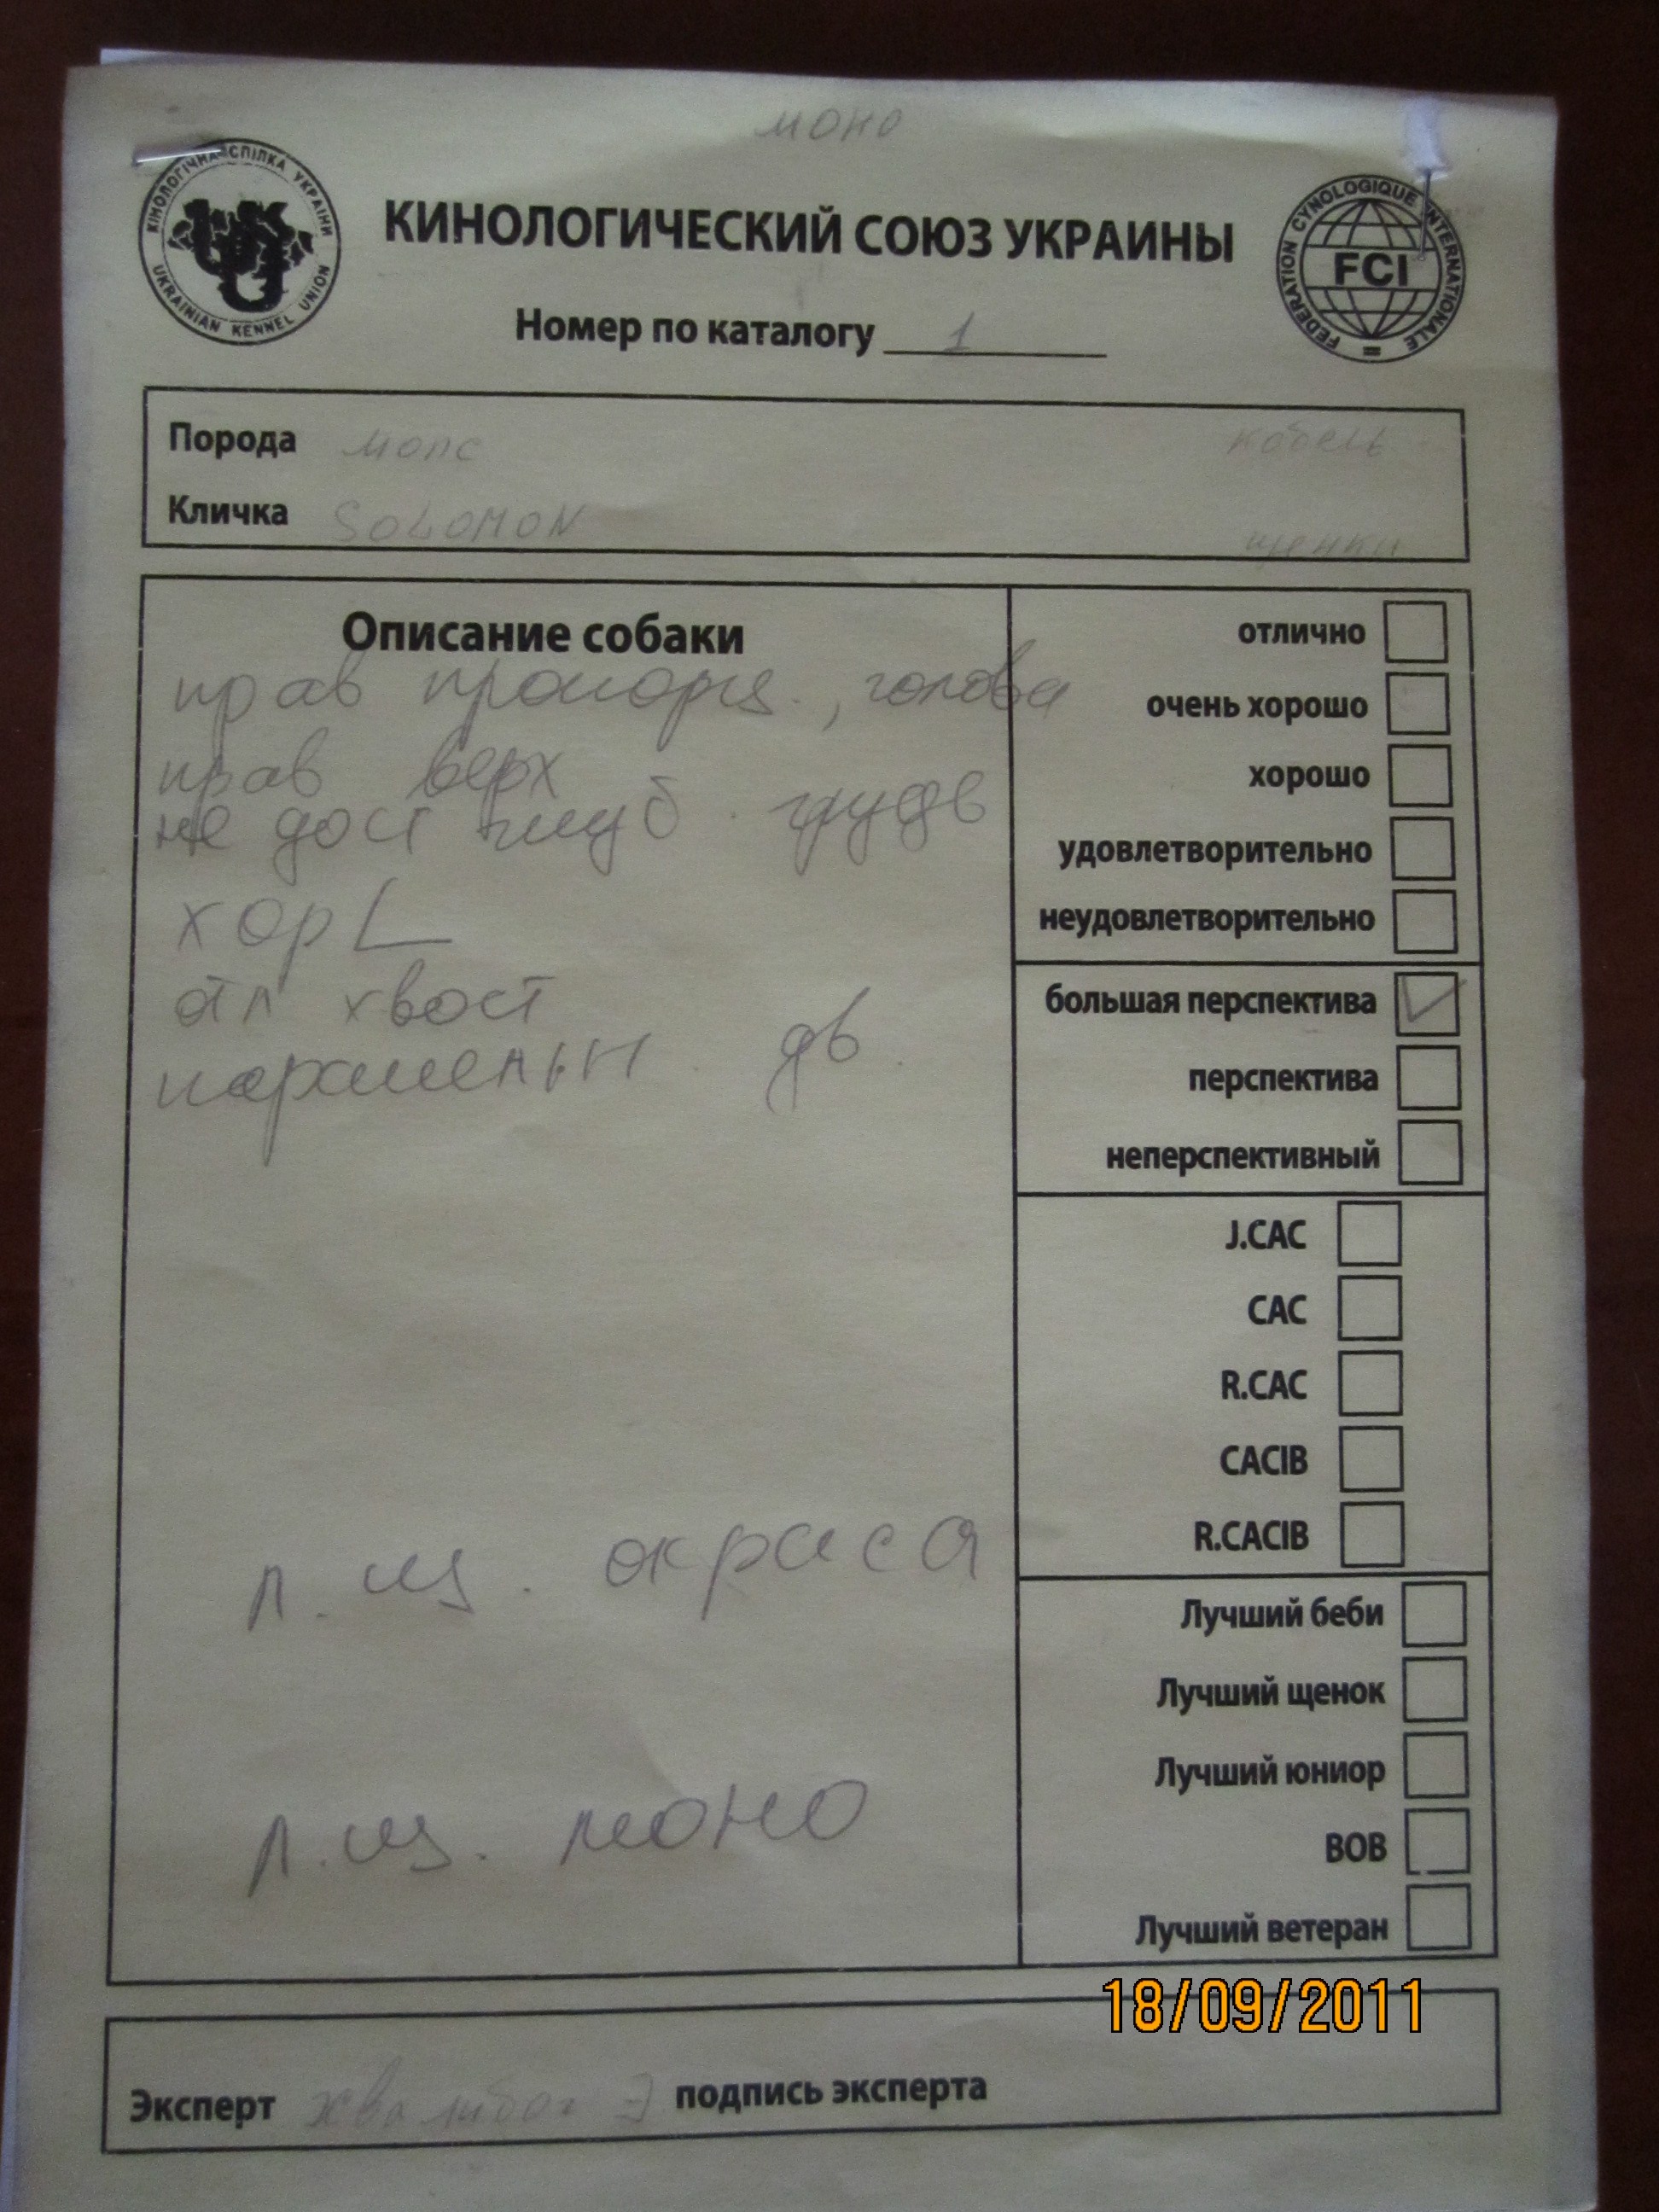 моно
КІНОЛОГІЧНА СПІЛКА УКРАЇНИ
UKRAINIAN KENNEL UNION
КИНОЛОГИЧЕСКИЙ СОЮЗ УКРАИНЫ
FEDERATION CYNOLOGIQUE INTERNATIONALE
FCI
Номер по каталогу 1
Порода мопс кобель
Кличка SOLOMON щенки
Описание собаки
прав пропорц., голова
прав верх
не дост глуб. грудь
хор L
отл хвост
параллельн. дв.
л. щ. окраса
л.щ. моно
отлично
очень хорошо
хорошо
удовлетворительно
неудовлетворительно
большая перспектива
перспектива
неперспективный
J.CAC
CAC
R.CAC
CACIB
R.CACIB
Лучший беби
Лучший щенок
Лучший юниор
BOB
Лучший ветеран
18/09/2011
Эксперт подпись эксперта